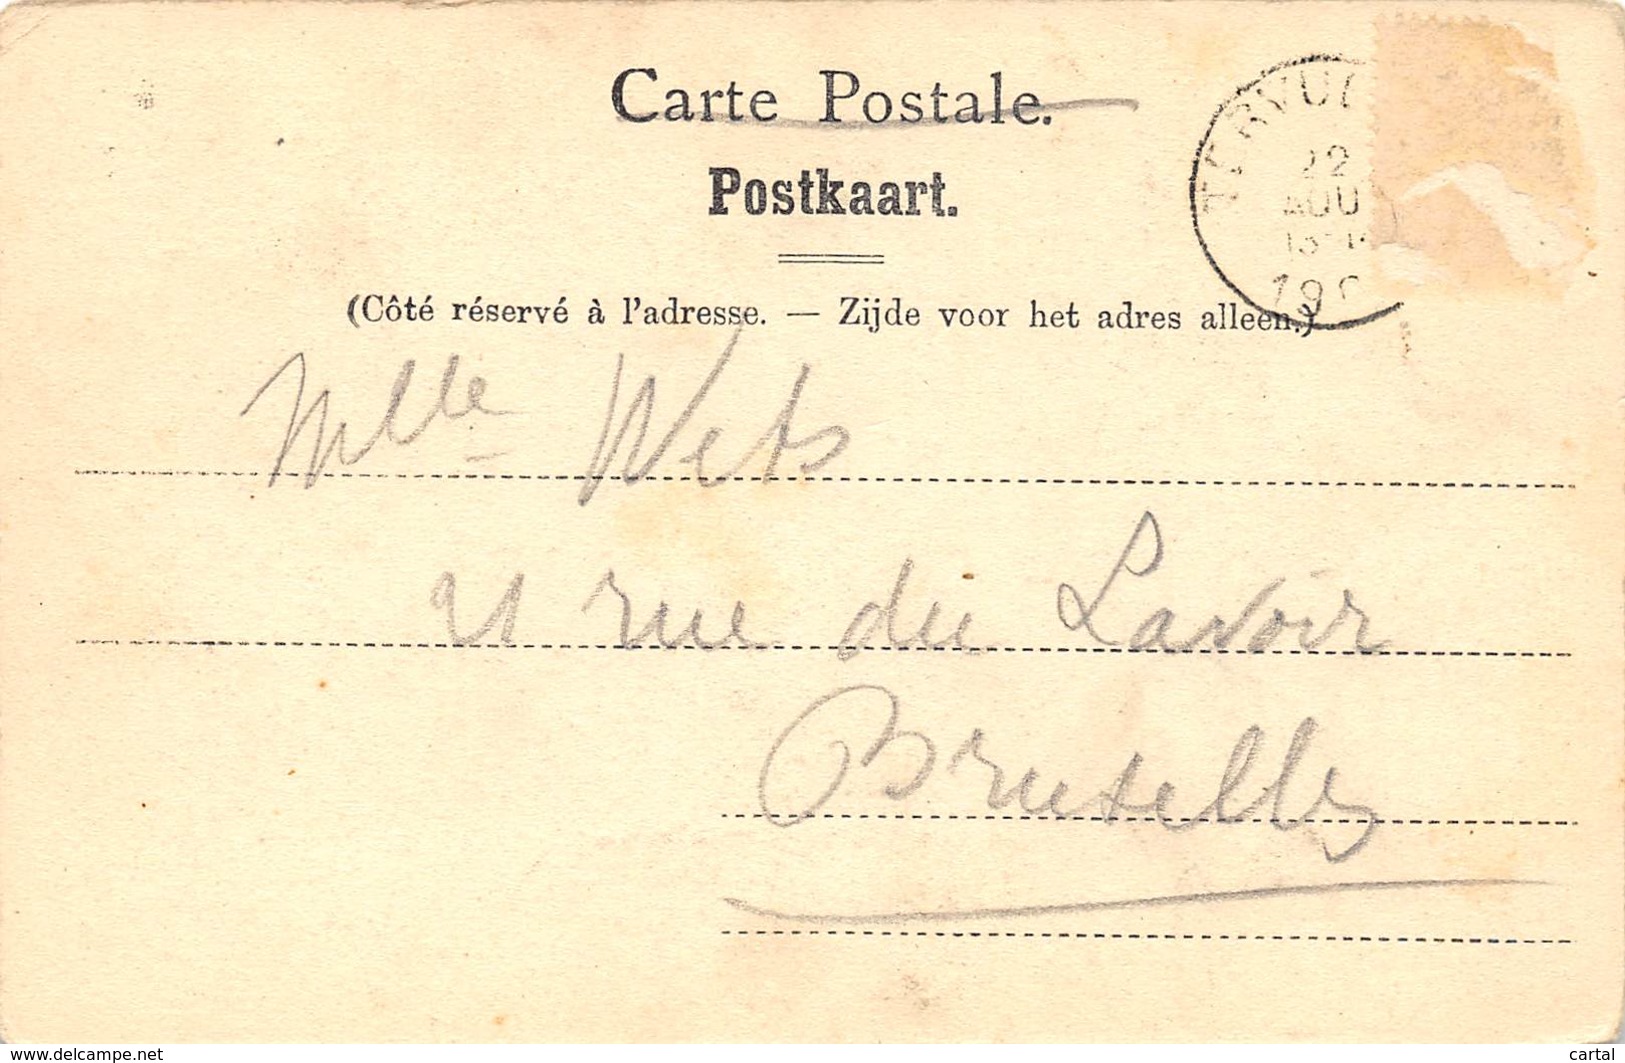 Carte Postale.
Postkaart.
(Côté réservé à l'adresse. — Zijde voor het adres alleen.)
TERVU
22
AOU
13-1
190
Mlle Wets
21 rue du Lavoir
Bruxelles
www.delcampe.net
cartal